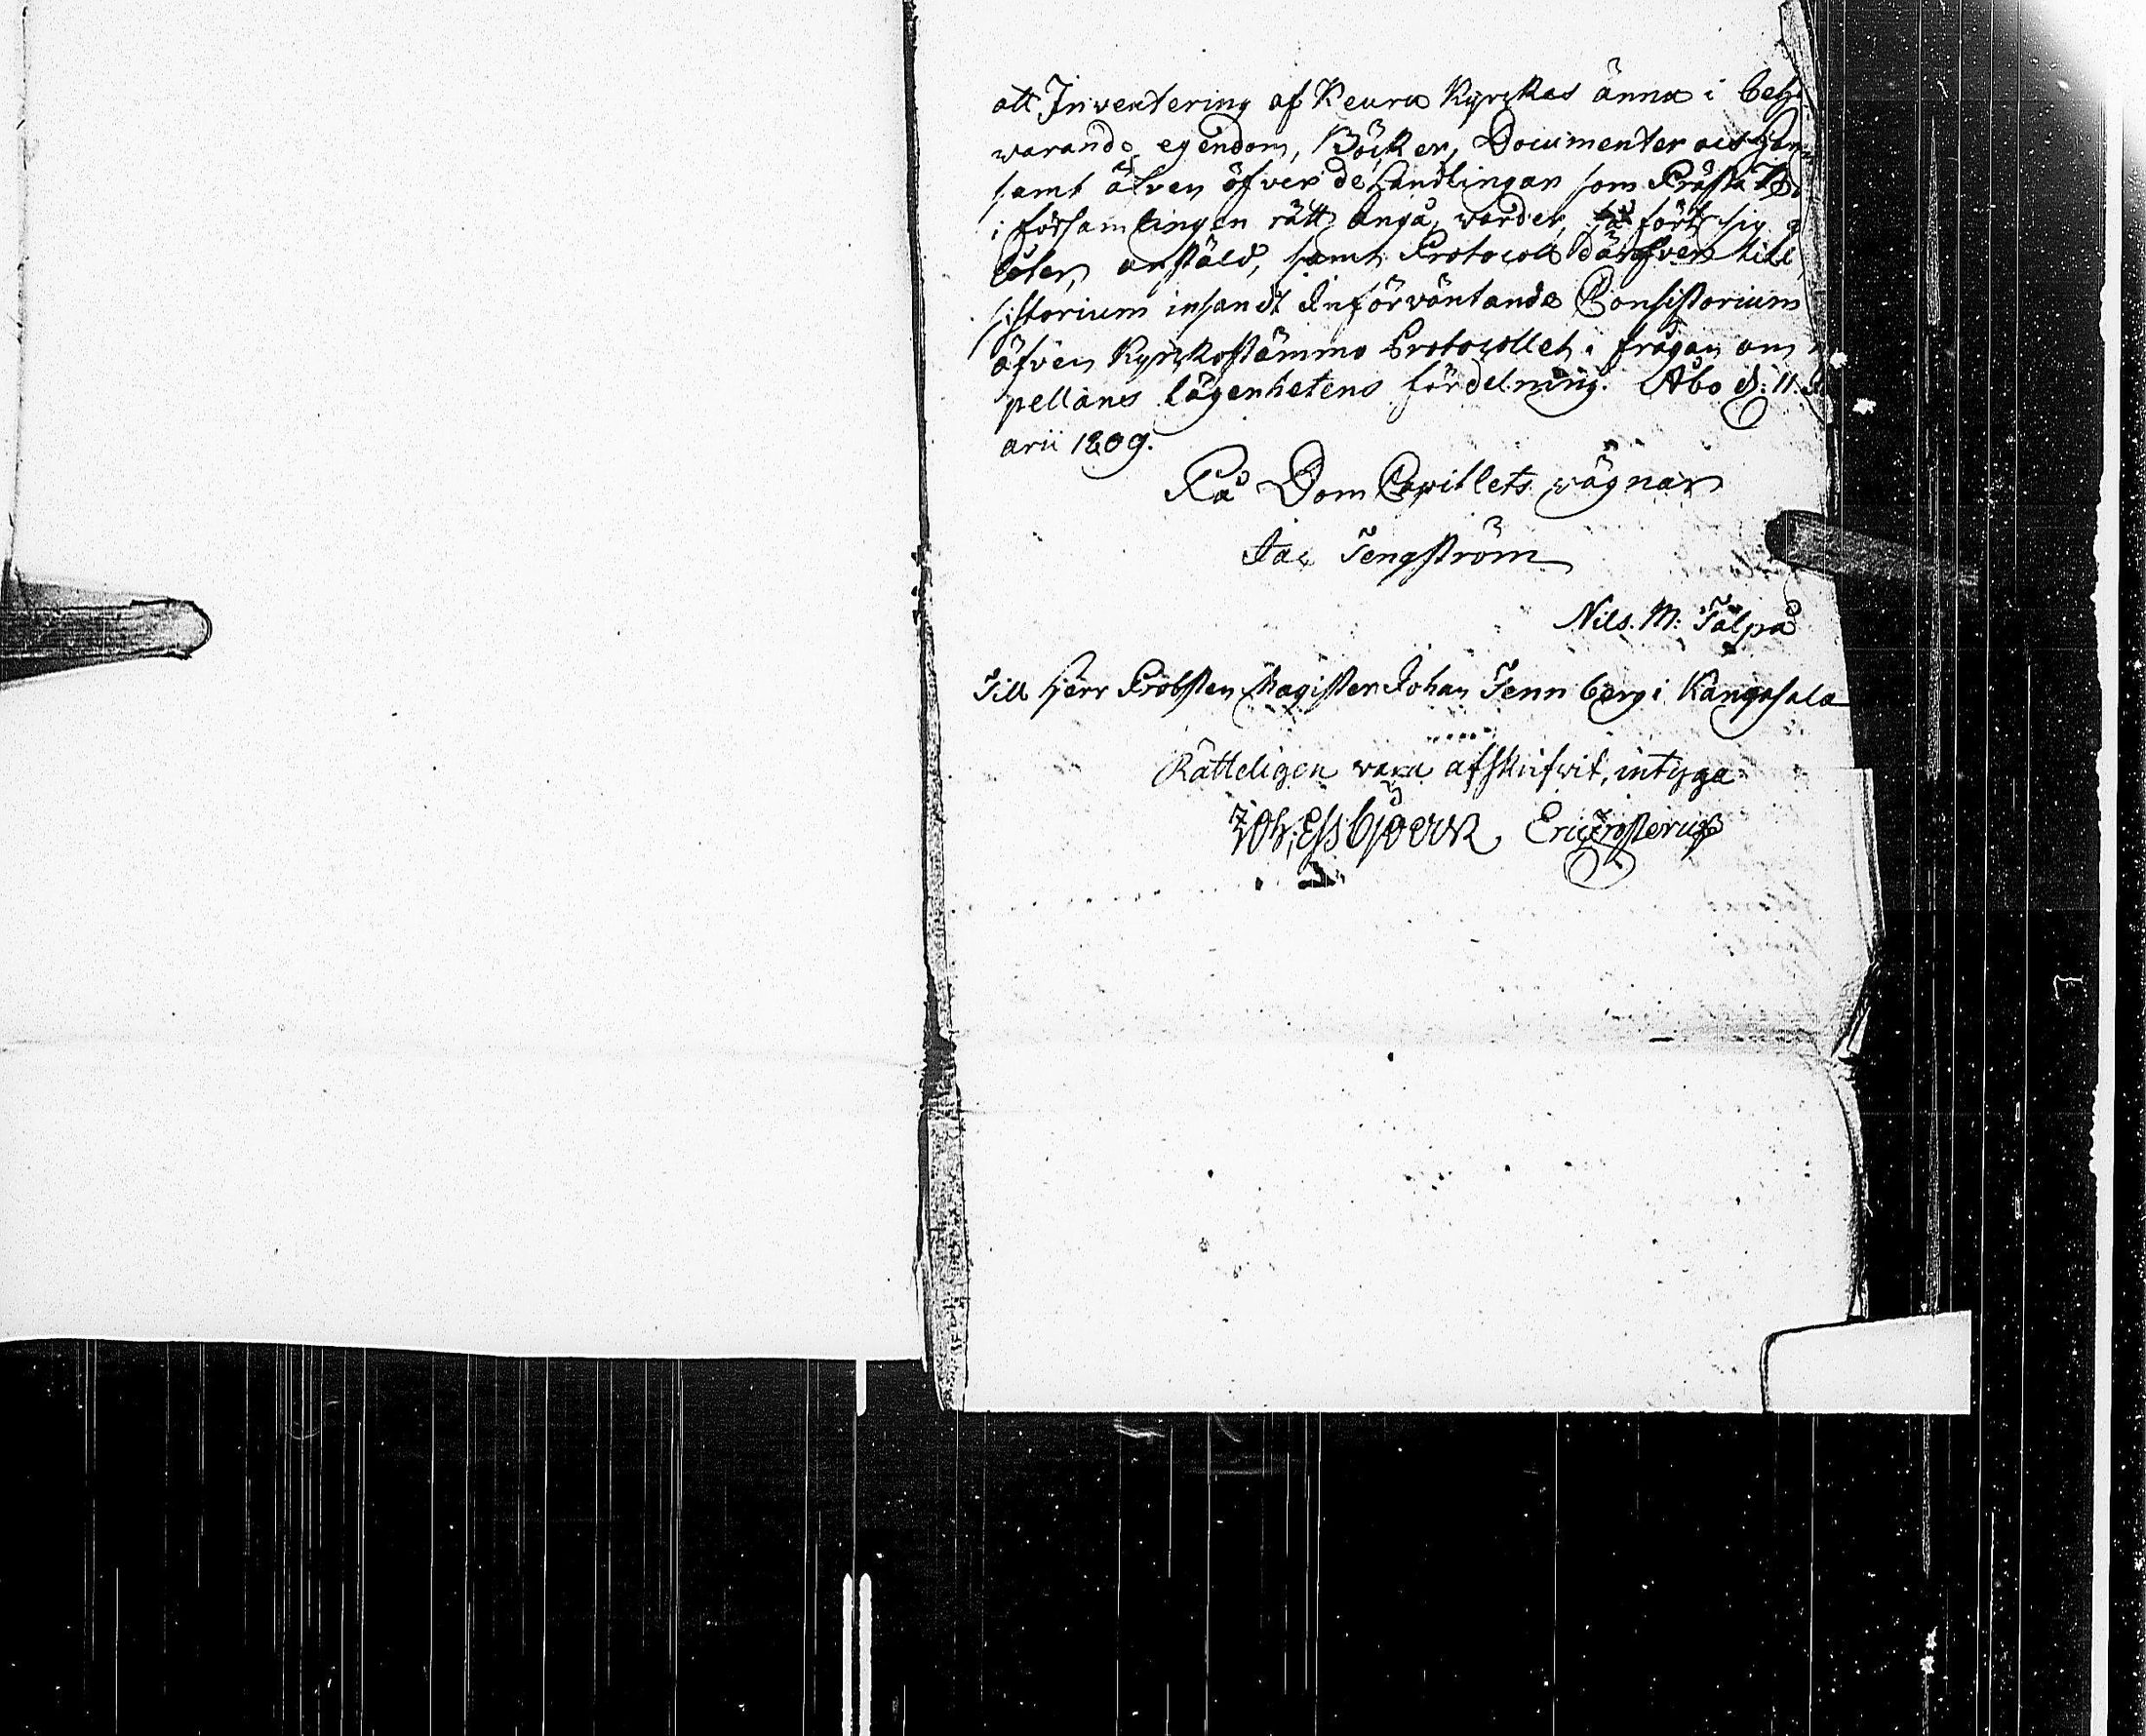 att Inventering af Keuru Kyrckas ännu i beh
warande egendom, Böcker, Documenter och
samt äfven öfver de Handlingar som Prästa
i församlingen rätt angå, warder, så fort sig
låter, anstäld, samt Protocoll däröfver till
sistorium insändt Införväntande Consistorium
äfven Kyrckostämmo Protocollet i frågan om
pellans lägenhetens fördelning. Åbo d: 11.
arii 1809.
På Dom Capitlets wägnar
Jac Tengström
Nils. M: Tålpo
Till Herr Probsten Magister Johan Fennberg i Kangasala
Rätteligen vara afskrifvit, intyga
Joh: Essbjörck Eric